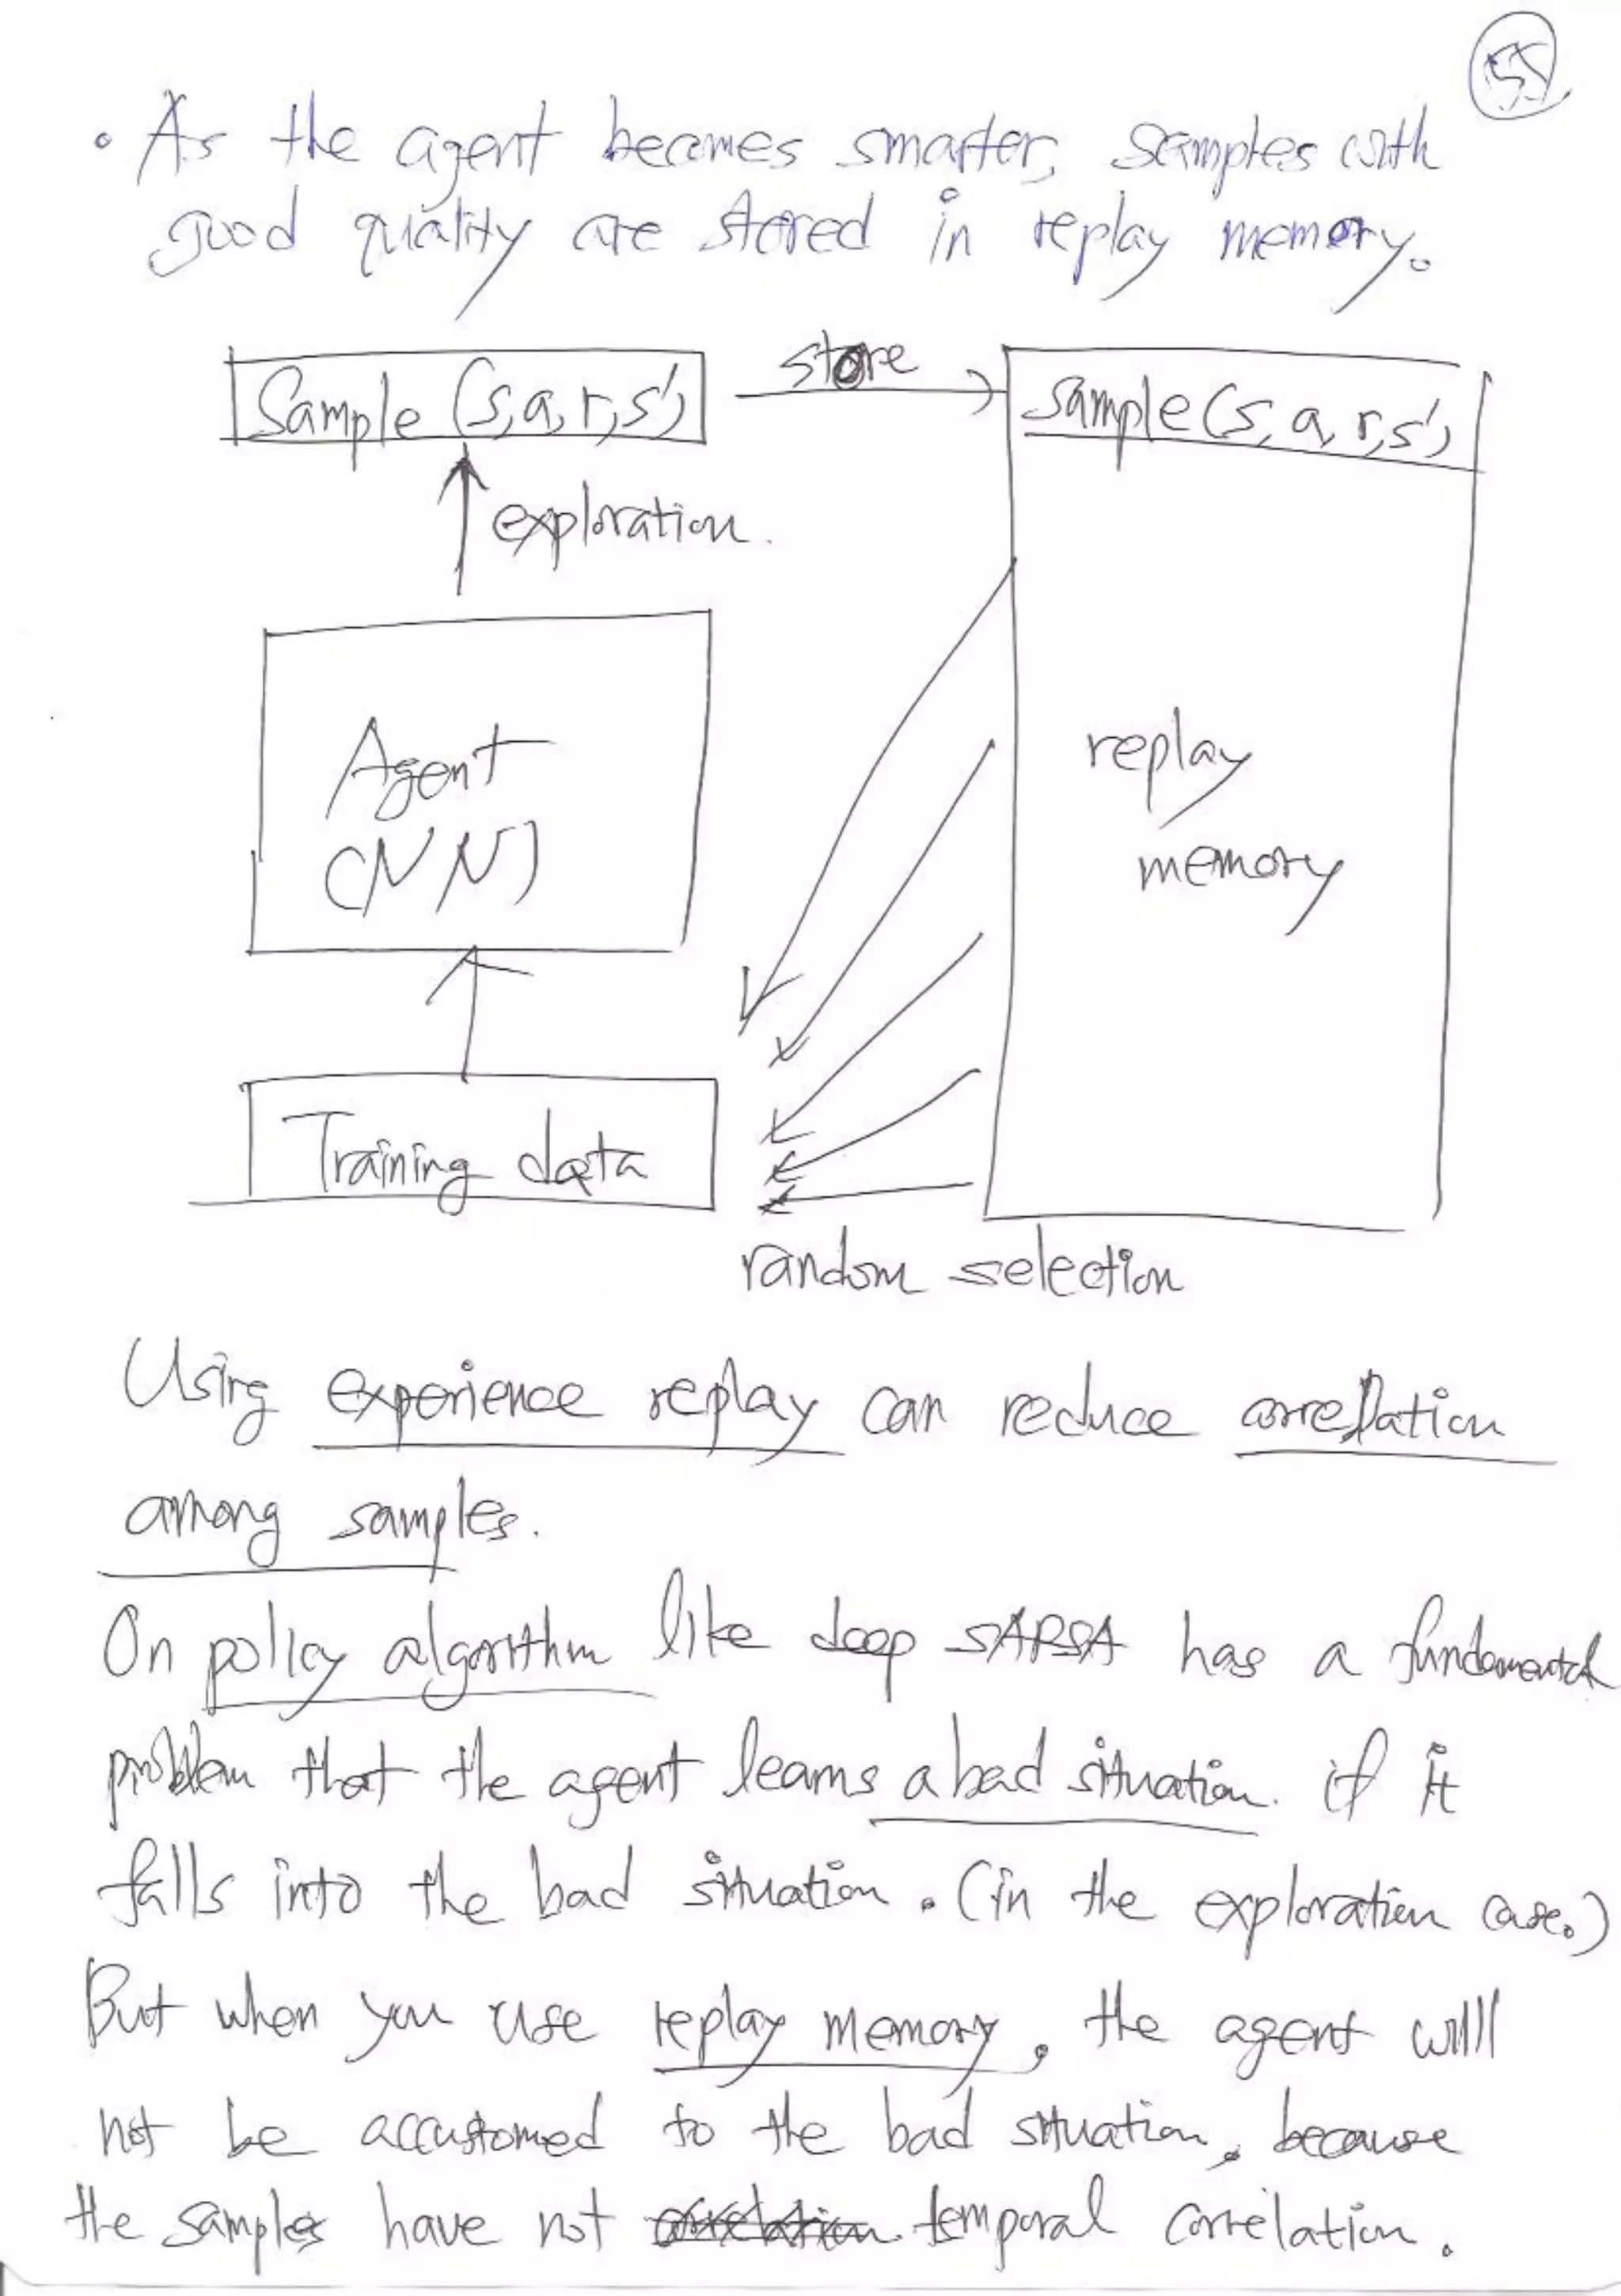 55
• As the agent becomes smarter, samples with
good quality are stored in replay memory.
Sample (s,a,r,s')
store
sample (s, a, r, s')
exploration.
Agent
(NN)
replay
memory
Training data
random selection
Using experience replay can reduce correlation
among samples.
On policy algorithm like deep SARSA has a fundamental
problem that the agent learns a bad situation. if it
falls into the bad situation. (in the exploration case.)
But when you use replay memory, the agent will
not be accustomed to the bad situation, because
the samples have not correlation temporal correlation.